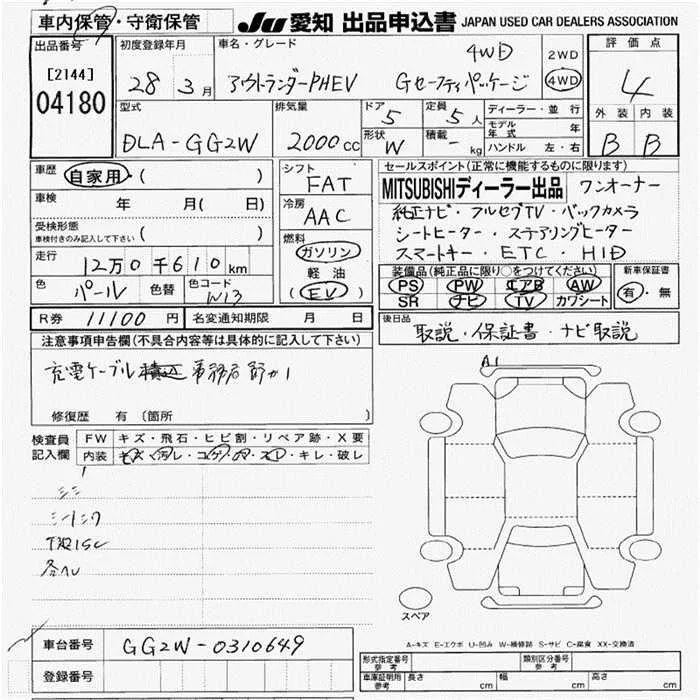 車内保管・守衛保管
JU 愛知 出品申込書 JAPAN USED CAR DEALERS ASSOCIATION
出品番号
[2144]
04180
初度登録年月
28年 3月
車名・グレード
アウトランダーPHEV 4WD Gセーフティパッケージ
2WD
4WD
評価点
4
外装 内装
B B
型式
DLA-GG2W
排気量
2000cc
ドア 5
形状 W
定員 5人
積載 - kg
ディーラー・並行
モデル年式 年
ハンドル 左・右
車歴 自家用・( )
車検 年 月( 日)
受検形態
車検付きのみ記入して下さい ( )
走行 12万0千610km
色 パール 色替 色コード W13
シフト
FAT
冷房
AAC
燃料
ガソリン
軽油
(EV)
セールスポイント(正常に機能するものに限ります)
MITSUBISHIディーラー出品 ワンオーナー
純正ナビ・フルセグTV・バックカメラ
シートヒーター・ステアリングヒーター
スマートキー・ETC・HID
装備品(純正品に限り○をつけてください)
PS PW エアB AW
SR ナビ TV カワシート
新車保証書
有・無
R券 11100円 名変通知期限 月 日
後日品
取説・保証書・ナビ取説
注意事項申告欄(不具合内容等は具体的に記入して下さい)
充電ケーブル 事務局
修復歴 有(箇所 )
検査員記入欄
FW キズ・飛石・ヒビ割・リペア跡・X要
内装 キズ・汚レ・コゲ・穴・スレ・キレ・破レ
A1
スペア
A-キズ E-エクボ U-凹み W-補修跡 S-サビ C-腐食 XX-交換済
車台番号 GG2W-0310649
登録番号
形式指定番号 参考
類別区分番号 参考
車庫証明用 参考 長さ cm 幅 cm 高さ cm